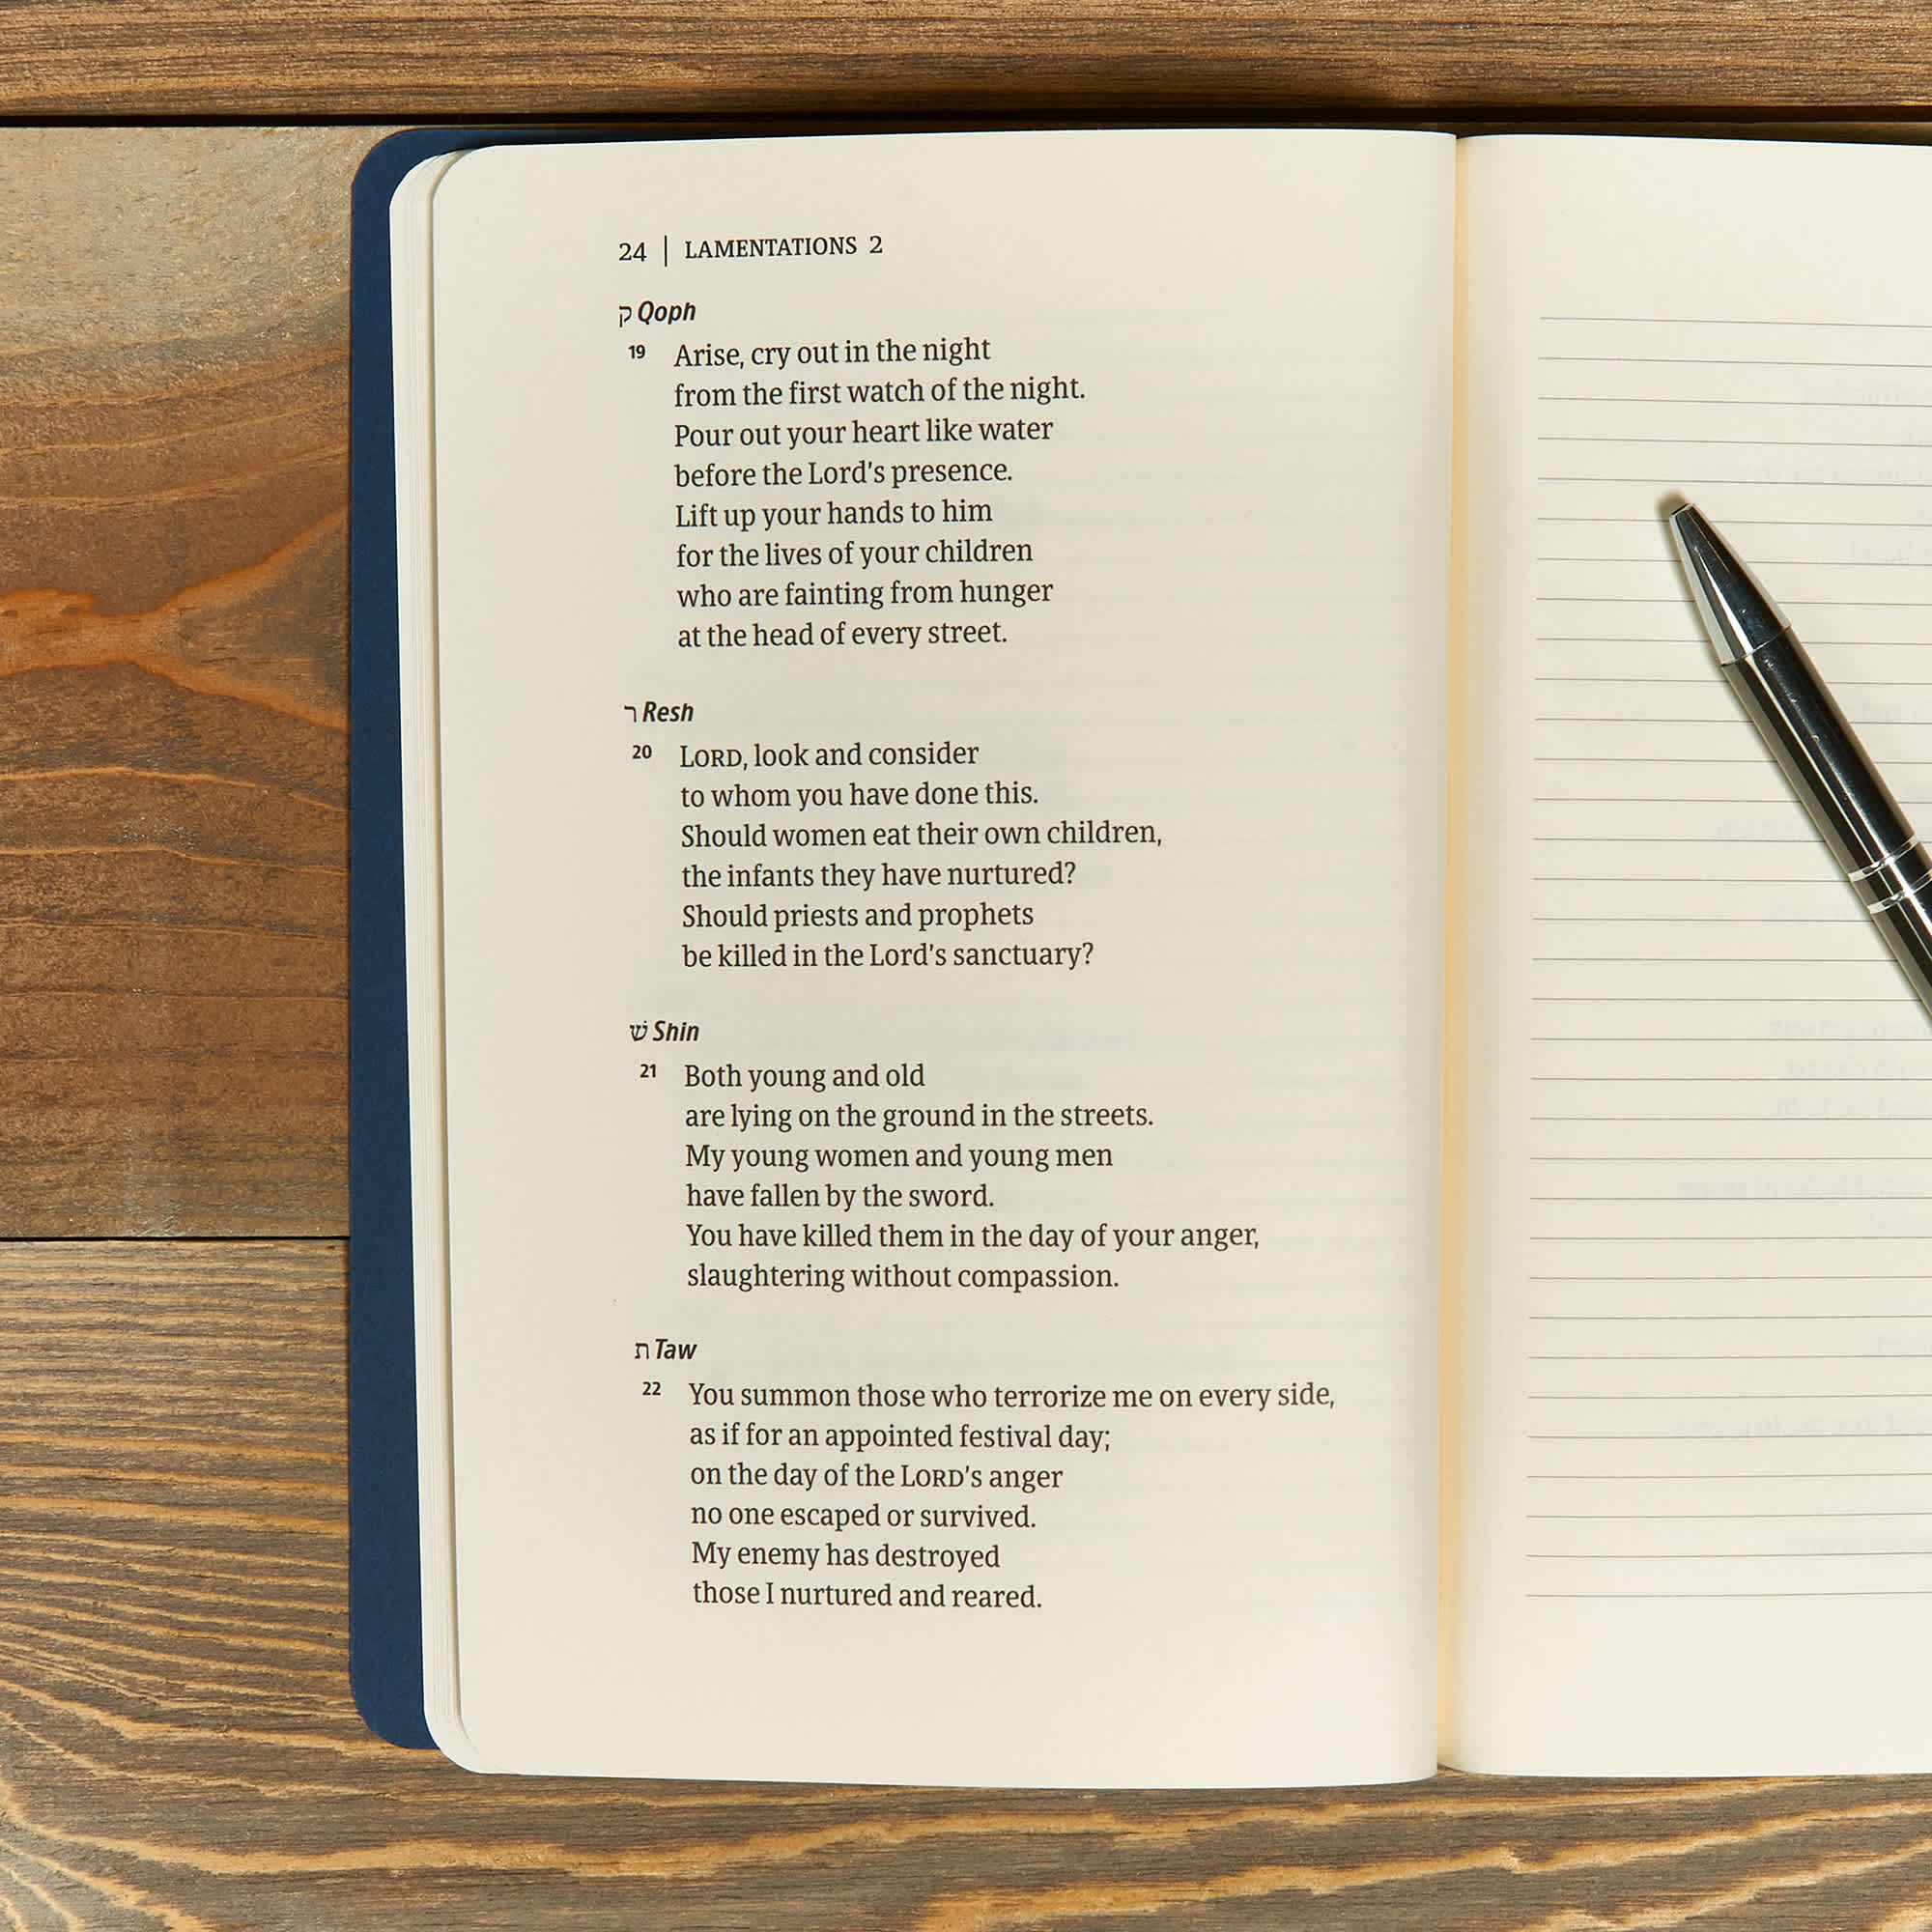 24 | LAMENTATIONS 2
ק Qoph
19 Arise, cry out in the night
from the first watch of the night.
Pour out your heart like water
before the Lord's presence.
Lift up your hands to him
for the lives of your children
who are fainting from hunger
at the head of every street.
ר Resh
20 LORD, look and consider
to whom you have done this.
Should women eat their own children,
the infants they have nurtured?
Should priests and prophets
be killed in the Lord's sanctuary?
שׁ Shin
21 Both young and old
are lying on the ground in the streets.
My young women and young men
have fallen by the sword.
You have killed them in the day of your anger,
slaughtering without compassion.
ת Taw
22 You summon those who terrorize me on every side,
as if for an appointed festival day;
on the day of the LORD's anger
no one escaped or survived.
My enemy has destroyed
those I nurtured and reared.